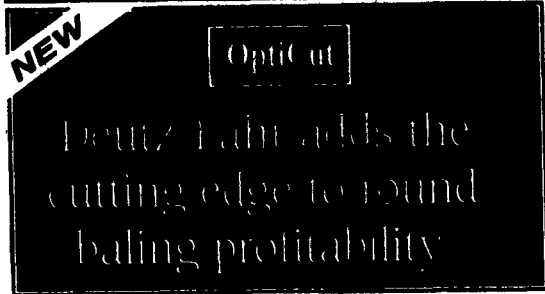 NEW
OptiCut
Deutz-Fahr adds the
cutting edge to round
baling profitability